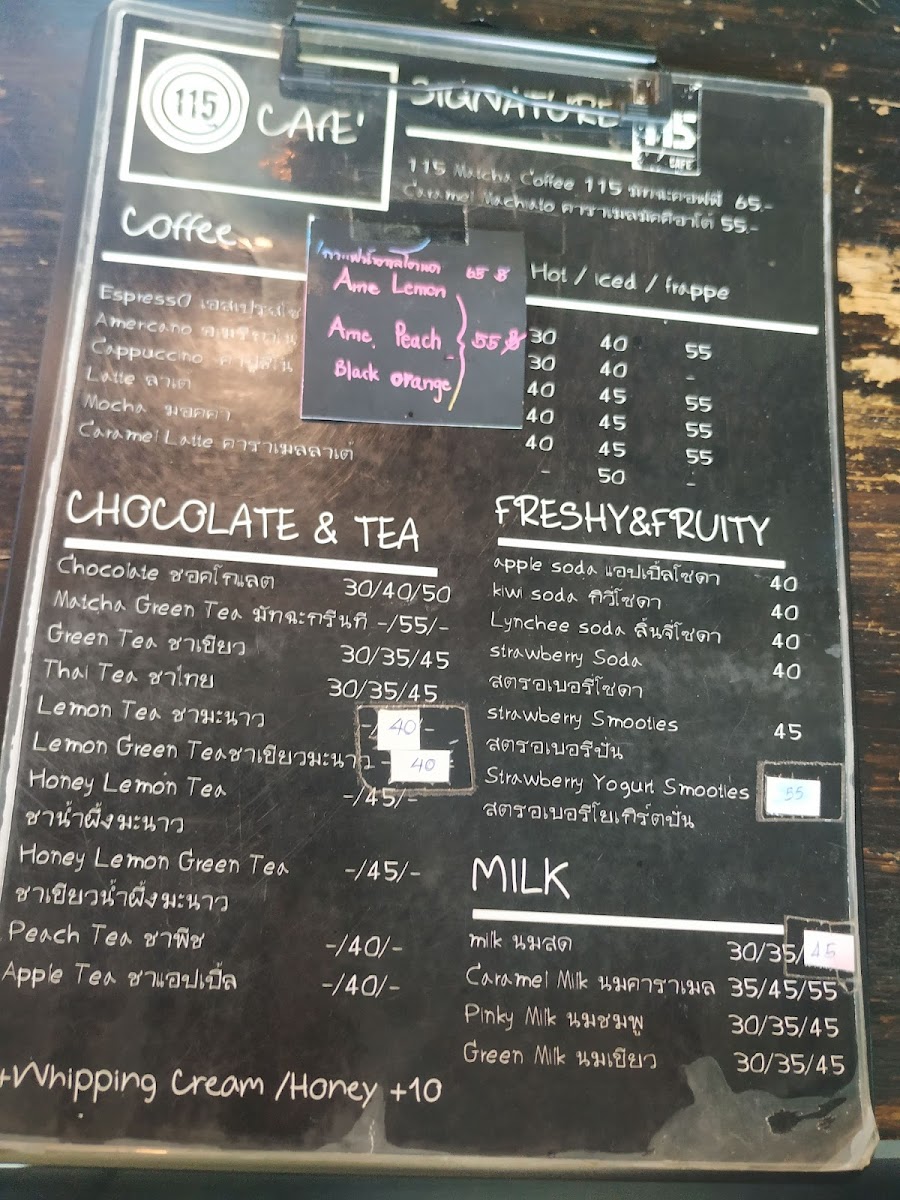 115
CAFE'
SIGNATURE
115
CAFE
115 Matcha Coffee 115 มัทฉะคอฟฟี่ 65.-
Caramel Machiato คาราเมลมัคคิอาโต้ 55.-
Coffee
Hot / iced / frappe
65 ฿
Ame Lemon
Ame. Peach } 55 ฿
Black orange
Espresso เอสเปรสโซ 30 40 55
Amercano 30 40 -
Cappuccino 40 45 55
Latte ลาเต้ 40 45 55
Mocha มอคค่า 40 45 55
Caramel Latte คาราเมลลาเต้ - 50 -
CHOCOLATE & TEA
Chocolate ชอคโกแลต 30/40/50
Matcha Green Tea มัทฉะกรีนที -/55/-
Green Tea ชาเขียว 30/35/45
Thai Tea ชาไทย 30/35/45
Lemon Tea ชามะนาว -/40/-
Lemon Green Teaชาเขียวมะนาว - 40
Honey Lemon Tea -/45/-
ชาน้ำผึ้งมะนาว
Honey Lemon Green Tea -/45/-
ชาเขียวน้ำผึ้งมะนาว
Peach Tea ชาพีช -/40/-
Apple Tea ชาแอปเปิ้ล -/40/-
+Whipping Cream /Honey +10
FRESHY&FRUITY
apple soda แอปเปิ้ลโซดา 40
kiwi soda กีวีโซดา 40
Lynchee soda ลิ้นจี่โซดา 40
strawberry Soda 40
สตรอเบอรี่โซดา
strawberry Smooties 45
สตรอเบอรี่ปั่น
Strawberry Yogurt Smooties 55
สตรอเบอรี่โยเกิร์ตปั่น
MILK
milk นมสด 30/35/45
Caramel Milk นมคาราเมล 35/45/55
Pinky Milk นมชมพู 30/35/45
Green Milk นมเขียว 30/35/45